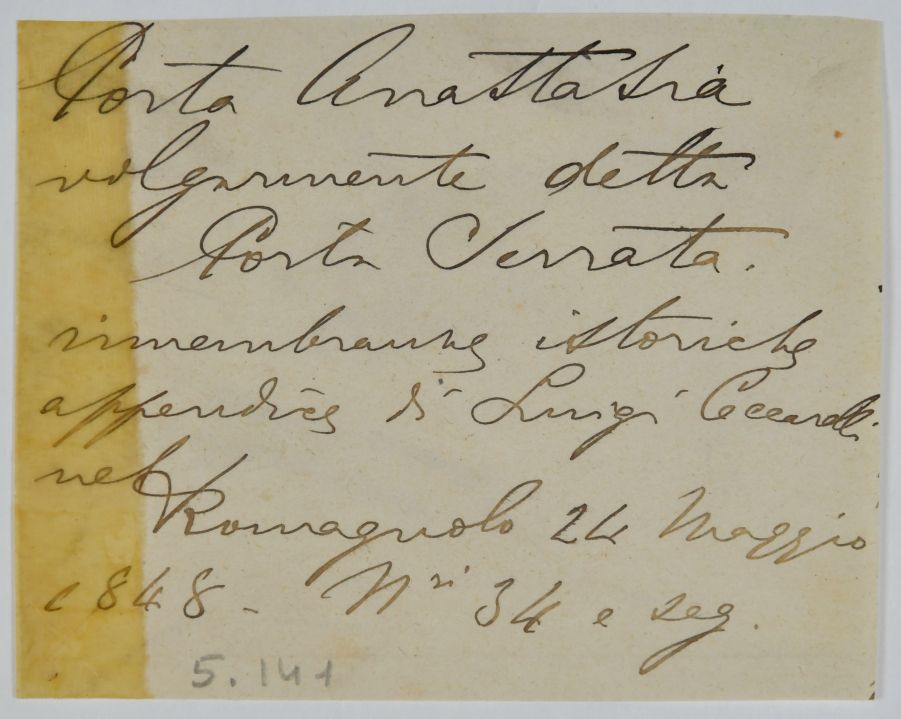 Porta Anastasia
volgarmente detta
Porta Serrata.
rimembranze istoriche
appendice di Luigi Ceccarelli
nel
Romagnolo 24 Maggio
1848 - Nri 34 e seg.
5.141